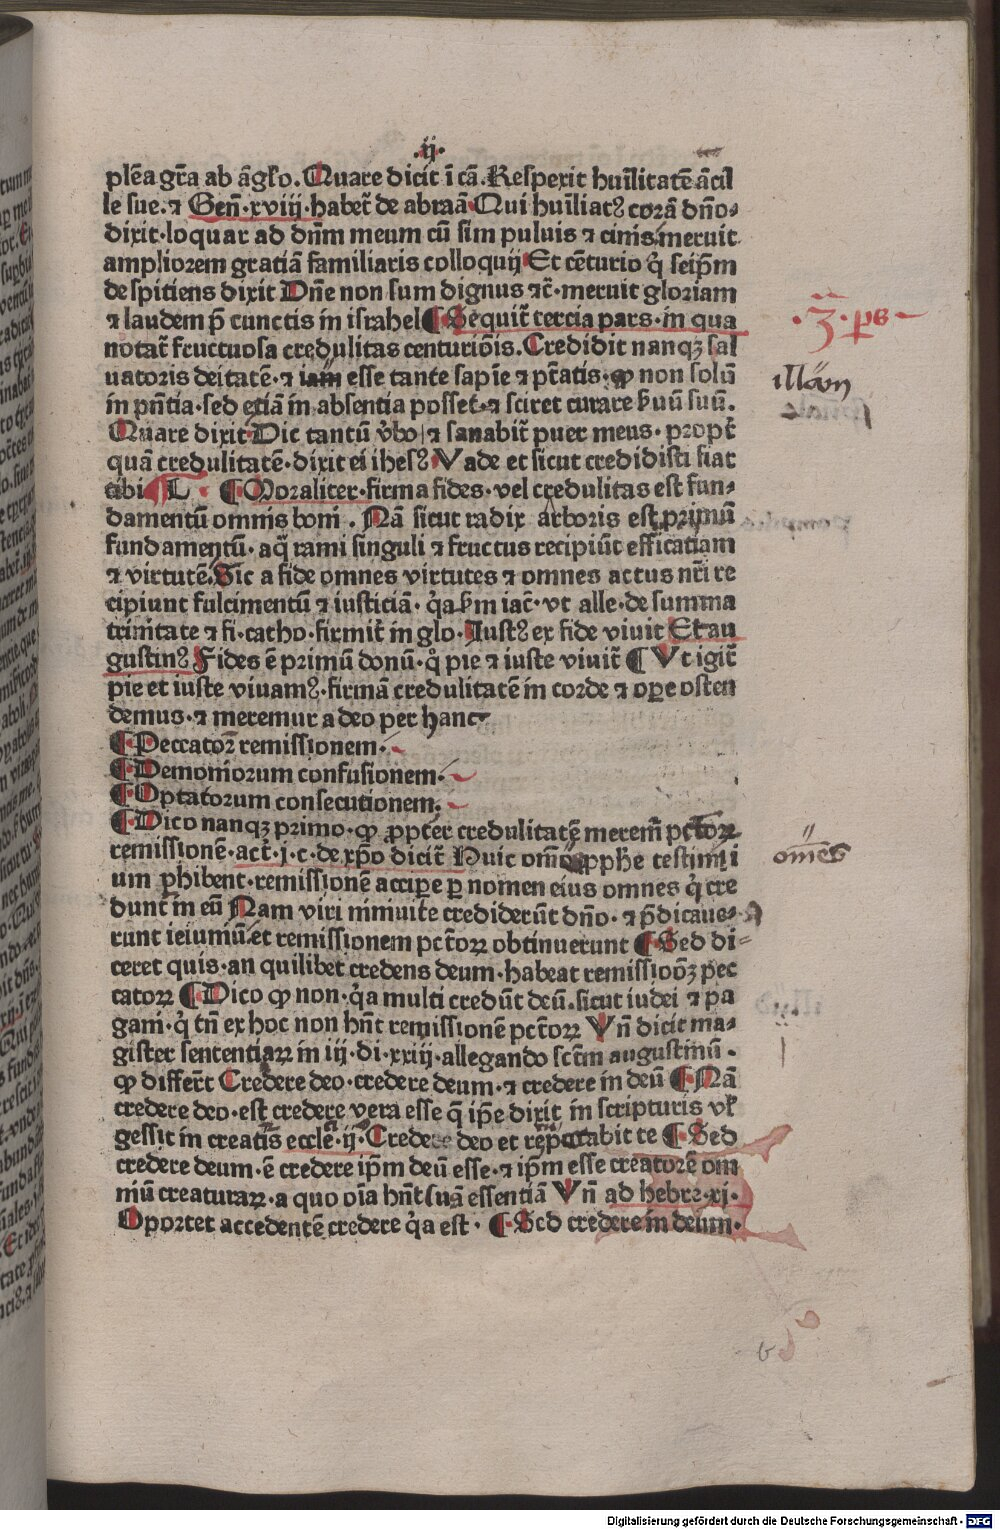 .ij.
plēa gr̄a ab āgło. Quare dicit ī cā. Respexit huīlitatē ācil
le sue. ⁊ Gen̄. xviij. habet̄ de abraā Qui huīliatꝰ corā dn̄o.
dixit. loquar ad dn̄m meum cū sim puluis ⁊ cinis. meruit
ampliorem gratiā familiaris colloquij Et cēturio q̇ seip̄m
despitiens dixit Dn̄e non sum dignus ⁊c̄. meruit gloriam
⁊ laudem p̄ cunctis in israhel ¶ Sequit̄ tercia pars. in qua
notat̄ fructuosa credulitas centuriōis. Credidit nanqꝫ sal
uatoris deitatē. ⁊ iam esse tante sapīe ⁊ pt̄atis. ꝙ non solū
in pn̄tia. sed etiā in absentia posset. ⁊ sciret curare ẜuū suū.
Quare dixit Dic tantū v̓bo ⁊ sanabit̄ puer meus. propt̄
quā credulitatē. dixit ei ihesꝰ Vade et sicut credidisti fiat
tibi L ¶ Moraliter. firma fides. vel credulitas est fun⸗
damentū omnis boni. Nā sicut radix arboris est primū
fundamentū. a q̄ rami singuli ⁊ fructus recipiūt efficatiam
⁊ virtutē. Sic a fide omnes virtutes ⁊ omnes actus nr̄i re
cipiunt fulcimentū ⁊ iusticiā. q̇a ẜm iac̄. vt alle. de summa
trinitate ⁊ fi. catho. firmit̄ in glo. Iustꝰ ex fide viuit Et au
gustinꝰ Fides ē primū donū. q̇ pie ⁊ iuste viuit̄ ¶ Vt igit̄
pie et iuste viuamꝰ. firmā credulitatē in corde ⁊ oꝑe osten
demus. ⁊ meremur a deo per hanc
¶ Peccatoꝝ remissionem.
¶ Demoniorum confusionem.
¶ Optatorum consecutionem.
¶ Dico nanqꝫ primo. ꝙ ꝓpter credulitatē meremr̄ pctoꝝ
remissionē. act̄. j. c. de xp̄o dicit̄ Huic om̄s ꝓphe testimōi
um ꝑhibent. remissionē acciꝑe ꝑ nomen eius omnes q̇ cre
dunt in eū Nam viri niniuite crediderūt dn̄o. ⁊ p̄dicaue⸗
runt ieiuniū. et remissionem pctōꝝ obtinuerunt ¶ Sed di⸗
ceret quis. an quilibet credens deum. habeat remissioōꝫ pec
catoꝝ ¶ Dico ꝙ non. q̇a multi credūt deū. sicut iudei ⁊ pa
gani. q̇ tn̄ ex hoc non hn̄t remissionē pctōꝝ Vn̄ dicit ma⸗
gister sententiaꝝ in iij. di. xxiij. allegando sctm̄ augustinū.
ꝙ differt̄ Credere deo. credere deum. ⁊ credere in deū ¶ Nā
credere deo. est credere vera esse q̄ ip̄e dixit in scripturis vł
gessit in creatis eccle. ij. Credere deo et recuperabit te ¶ Sed
credere deum. ē credere ip̄m deū esse. ⁊ ip̄m esse creatorē om
niū creaturaꝝ. a quo oīa hn̄t suā essentiā Vn̄ ad hebre. xi.
Oportet accedentē credere q̇a est. ¶ Sed credere in deum.
.3. ps
omēs
6
Digitalisierung gefördert durch die Deutsche Forschungsgemeinschaft - DFG